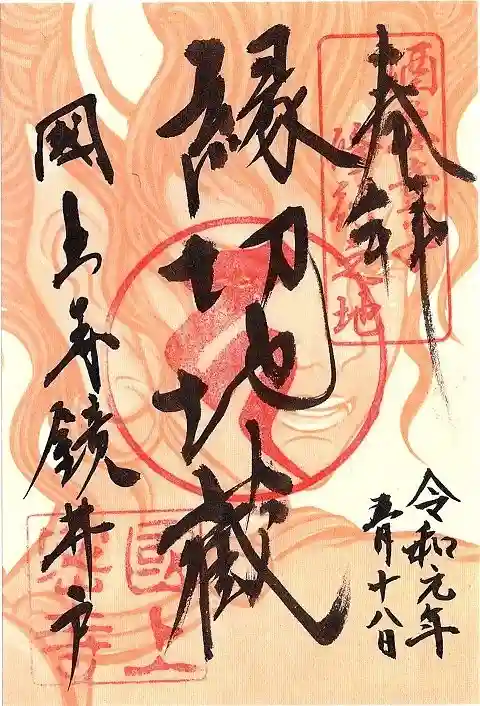 奉拝
酒呑童子
之地
縁切地蔵
國上寺鏡井戸
令和元年
五月十八日
國上
寺